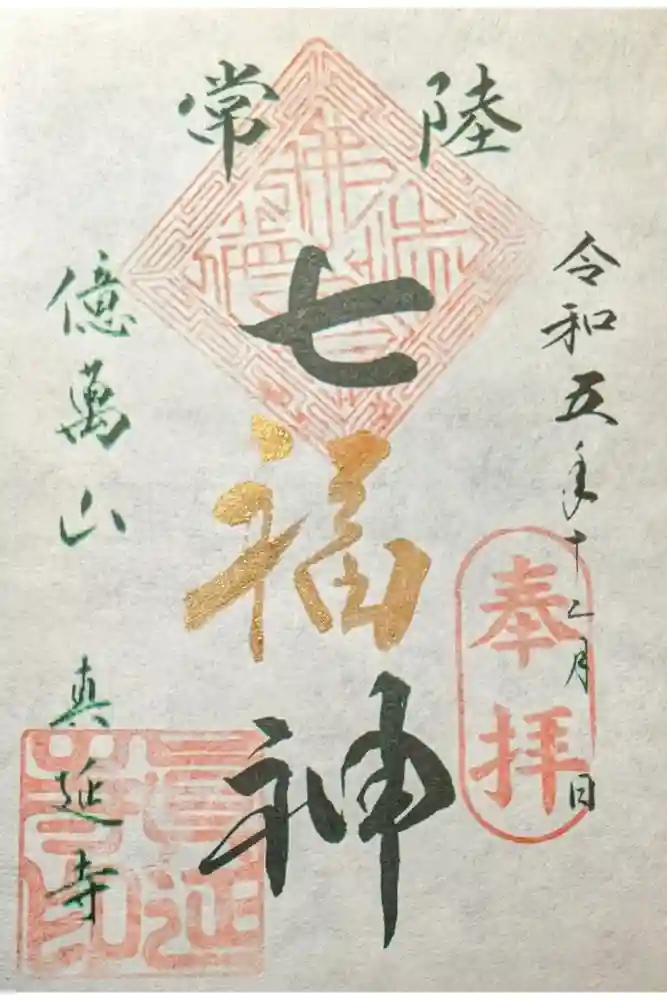 常陸
令和五年十二月 日
奉拝
七福神
億萬山 真延寺
真延寺印